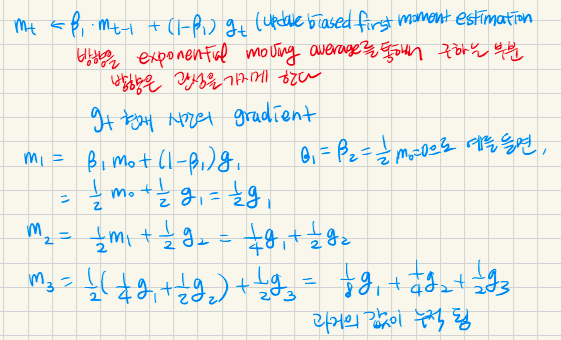 m_t ← β_1·m_{t-1} + (1-β_1) g_t (update biased first moment estimation
방향을 exponential moving average를 통해서 구하는 부분
방향은 관성을 가지게 한다
g_t 현재 시간의 gradient
m_1 = β_1 m_0 + (1-β_1) g_1 β_1 = β_2 = 1/2 m_0=0으로 예를 들면,
= 1/2 m_0 + 1/2 g_1 = 1/2 g_1
m_2 = 1/2 m_1 + 1/2 g_2 = 1/4 g_1 + 1/2 g_2
m_3 = 1/2 (1/4 g_1 + 1/2 g_2) + 1/2 g_3 = 1/8 g_1 + 1/4 g_2 + 1/2 g_3
과거의 값이 누적 됨